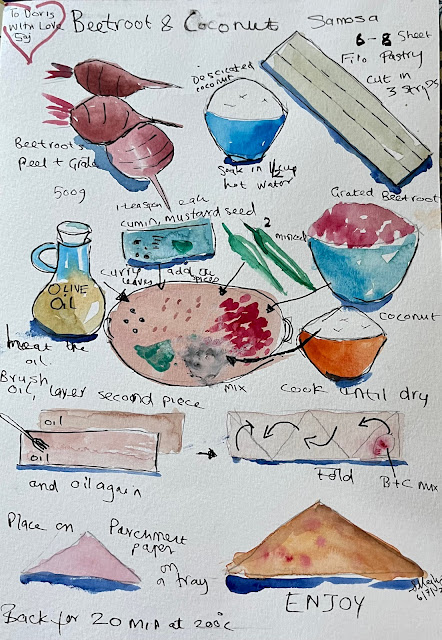 To Doris
With Love
Saj
Beetroot & Coconut Samosa
6-8 Sheet
Filo Pastry
Cut in
3 strips
Desicated
coconut
Beetroots
Peel + Grate
500g
Soak in 1/2 cup
hot water
1 teaspon each
cumin, mustard seed
Grated Beetroot
2
minced
curry
leaves
add the
spices
OLIVE
Oil
heat the
oil.
coconut
mix
cook until dry
Brush
oil, layer second piece
oil
oil
and oil again
fold
B+C mix
Place on
Parchment
paper
on
a tray
ENJOY
Back for 20 min at 200°c